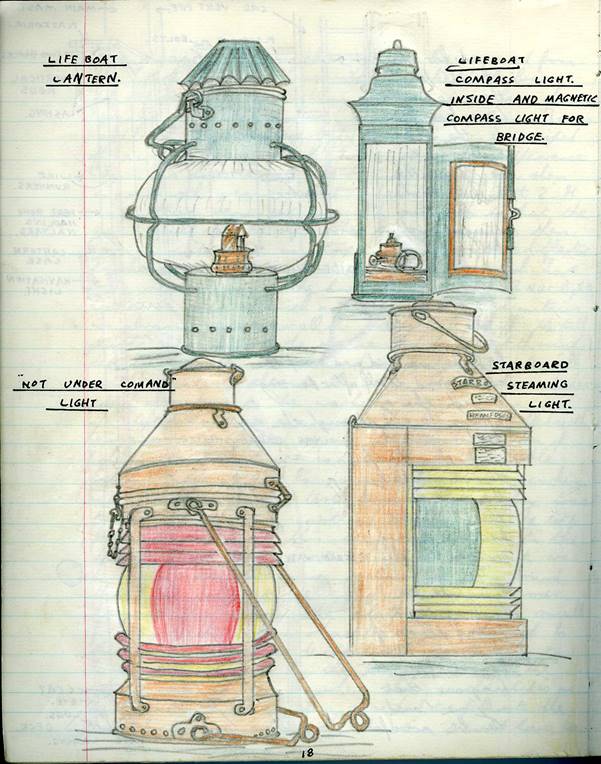 LIFE BOAT
LANTERN.
LIFEBOAT
COMPASS LIGHT.
INSIDE AND MAGNETIC
COMPASS LIGHT FOR
BRIDGE.
"NOT UNDER COMAND"
LIGHT
STARBOARD
STEAMING
LIGHT.
STARBO
18